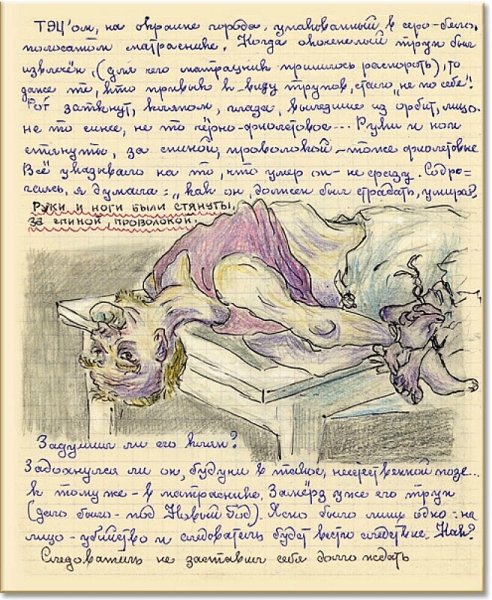 ТЭЦ'ом, на окраине города, упакованный в серо-бело-
полосатом матраснике. Когда окоченелый труп был
извлечён, (для чего матрасник пришлось распороть), то
даже те, кто привык к виду трупов, стало „не по себе".
Рот заткнут, кляпом, глаза, вылезшие из орбит, лицо-
не то синее, не то чёрно-фиолетовое... Руки и ноги
стянуты, за спиной, проволокой - тоже фиолетовые
Всё указывало на то, что умер он - не сразу. Содро-
гаясь, я думала: „как он, должен был страдать, умирая,
Руки и ноги были стянуты,
за спиной, проволокой.
Задушил ли его кляп?
Задохнулся ли он, будучи в такой, неестественной позе...
к тому же - в матраснике. Замёрз уже его труп
(дело было - под Новый Год). Ясно было лишь одно: на
лицо - убийство и следователь будет вести следствие. Как?
Следователь не заставил себя долго ждать